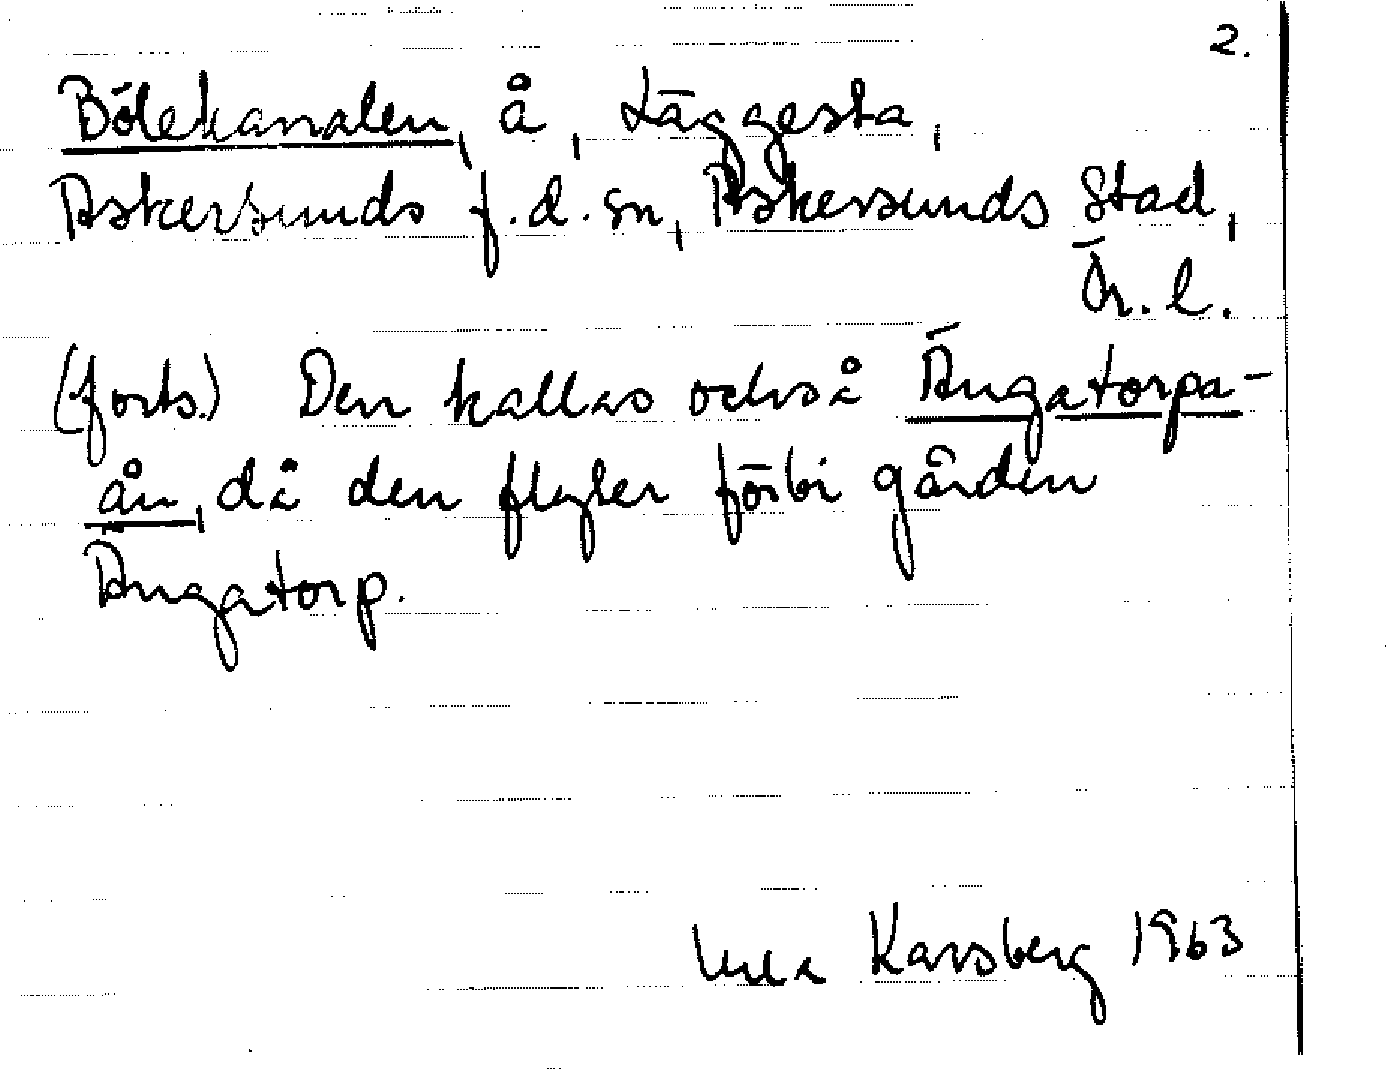 2.
Bölekanalen, å, Läggesta,
Askersunds f.d. sn, Askersunds Stad,
Ör. l.
(forts.) Den kallas också Ängatorpa-
ån, då den flyter förbi gården
Ängatorp.
Karsberg 1963